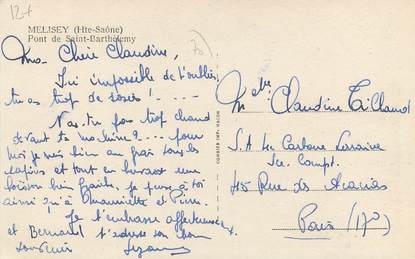 124
MELISEY (Hte-Saône)
Pont de Saint-Barthélemy
ma Chère Claudine,
Ici impossible de t'oublier
tu as trop de
N'as-tu pas trop chaud
devant ta machine? .... pour
moi je suis bien au frais sous les
sapins et tout en buvant une
boisson bien fraîche, je pense à toi
ainsi qu'à Mauricette et Pierre.
Je t'embrasse affectueusement
et Bernard t'adresse son bon
souvenir
Melle Claudine Taillamet
S.A. Le Carbone Lorraine
Sce. Compt.
45 Rue des Acacias
Paris (17e)